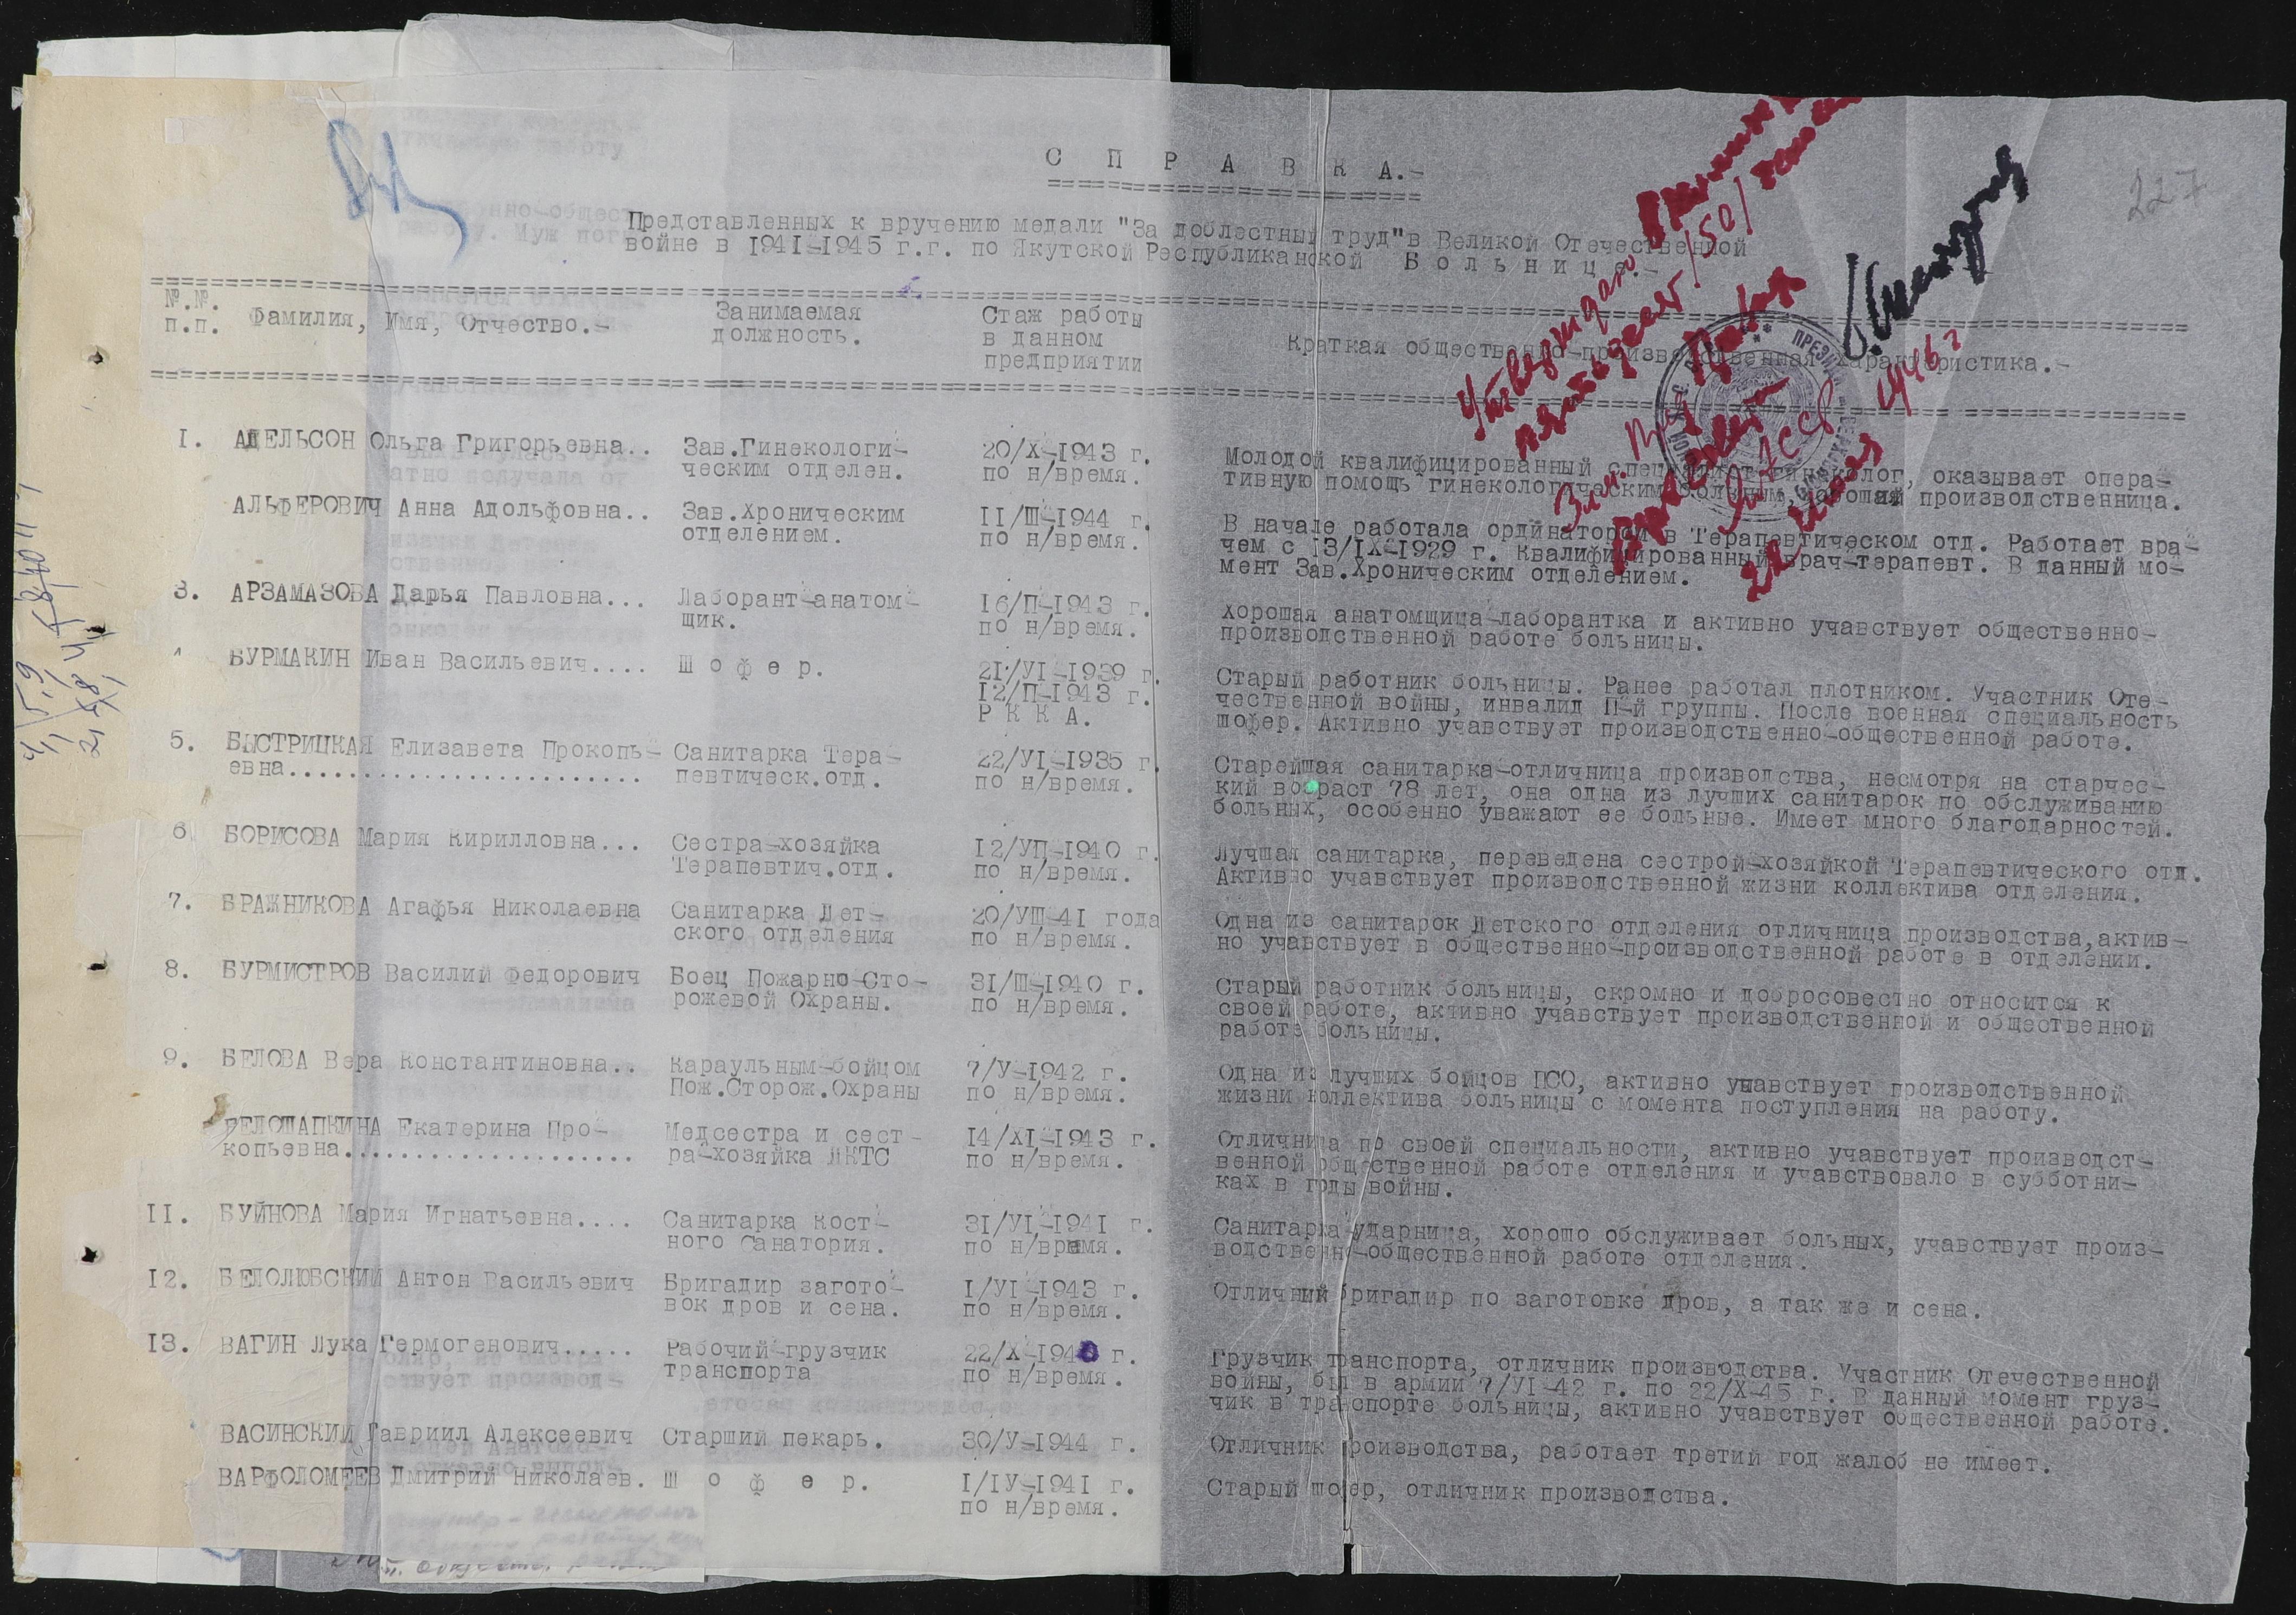 227
С П Р А В К А.-
Представленных к вручению медали "За доблестный труд" в Великой Отечественной
войне в 1941-1945 г.г. по Якутской Республиканской Б о л ь н и ц е.-
№.№. п.п.
Фамилия, Имя, Отчество.-
Занимаемая должность.
Стаж работы в данном предприятии
Краткая общественно-производственная характеристика.-
Утверждаю
пятьдесят /50/
Зам. Пред. През.
Верховн.
ЯАССР
1946 г
I. АДЕЛЬСОН Ольга Григорьевна.. Зав.Гинекологи- 20/X-1943 г.
ческим отделен. по н/время.
Молодой квалифицированный специалист гинеколог, оказывает опера-
тивную помощь гинекологическим больным, хорошая производственница.
АЛЬФЕРОВИЧ Анна Адольфовна.. Зав.Хроническим II/Ш-1944 г.
отделением. по н/время.
В начале работала ординатором в Терапевтическом отд. Работает вра-
чем с 13/IX-1929 г. Квалифицированный врач-терапевт. В данный мо-
мент Зав.Хроническим отделением.
3. АРЗАМАЗОВА Дарья Павловна... Лаборант-анатом- 16/П-1943 г.
щик. по н/время.
Хорошая анатомщица-лаборантка и активно учавствует общественно-
производственной работе больницы.
БУРМАКИН Иван Васильевич.... Ш о ф е р. 21/УI-1939 г.
12/П-1943 г.
Р К К А.
Старый работник больницы. Ранее работал плотником. Участник Оте-
чественной войны, инвалид П-й группы. После военная специальность
шофер. Активно учавствует производственно-общественной работе.
5. БЫСТРИЦКАЯ Елизавета Прокопь- Санитарка Тера- 22/УI-1935 г.
евна........................ певтическ.отд. по н/время.
Старейшая санитарка-отличница производства, несмотря на старчес-
кий возраст 78 лет, она одна из лучших санитарок по обслуживанию
больных, особенно уважают ее больные. Имеет много благодарностей.
6. БОРИСОВА Мария Кирилловна... Сестра-хозяйка 12/УП-1940 г.
Терапевтич.отд. по н/время.
Лучшая санитарка, переведена сестрой-хозяйкой Терапевтического отд.
Активно учавствует производственной жизни коллектива отделения.
7. БРАЖНИКОВА Агафья Николаевна Санитарка Дет- 20/УШ-41 года
ского отделения по н/время.
Одна из санитарок Детского отделения отличница производства,актив-
но учавствует в общественно-производственной работе в отделении.
8. БУРМИСТРОВ Василий Федорович Боец Пожарно-Сто- 31/Ш-1940 г.
рожевой Охраны. по н/время.
Старый работник больницы, скромно и добросовестно относится к
своей работе, активно учавствует производственной и общественной
работе больницы.
9. БЕЛОВА Вера Константиновна.. Караульным-бойцом 7/У-1942 г.
Пож.Сторож.Охраны по н/время.
Одна из лучших бойцов ПСО, активно учавствует производственной
жизни коллектива больницы с момента поступления на работу.
БЕЛОШАПКИНА Екатерина Про- Медсестра и сест- 14/XI-1943 г.
копьевна.................... ра-хозяйка ДКТС по н/время.
Отличница по своей специальности, активно учавствует производст-
венной общественной работе отделения и учавствовало в субботни-
ках в годы войны.
II. БУЙНОВА Мария Игнатьевна.... Санитарка Кост- 31/УI-1941 г.
ного Санатория. по н/время.
Санитарка-ударница, хорошо обслуживает больных, учавствует произ-
водственно-общественной работе отделения.
12. БЕЛОЛЮБСКИЙ Антон Васильевич Бригадир загото- I/УI-1943 г.
вок дров и сена. по н/время.
Отличный бригадир по заготовке дров, а так же и сена.
13. ВАГИН Лука Гермогенович..... Рабочий-грузчик 22/X-1940 г.
транспорта по н/время.
Грузчик транспорта, отличник производства. Участник Отечественной
войны, был в армии 7/УI-42 г. по 22/X-45 г. В данный момент груз-
чик в транспорте больницы, активно учавствует общественной работе.
ВАСИНСКИЙ Гавриил Алексеевич Старший пекарь. 30/У-1944 г.
Отличник производства, работает третий год жалоб не имеет.
ВАРФОЛОМЕЕВ Дмитрий Николаев. Ш о ф е р. I/IУ-1941 г.
по н/время.
Старый шофер, отличник производства.